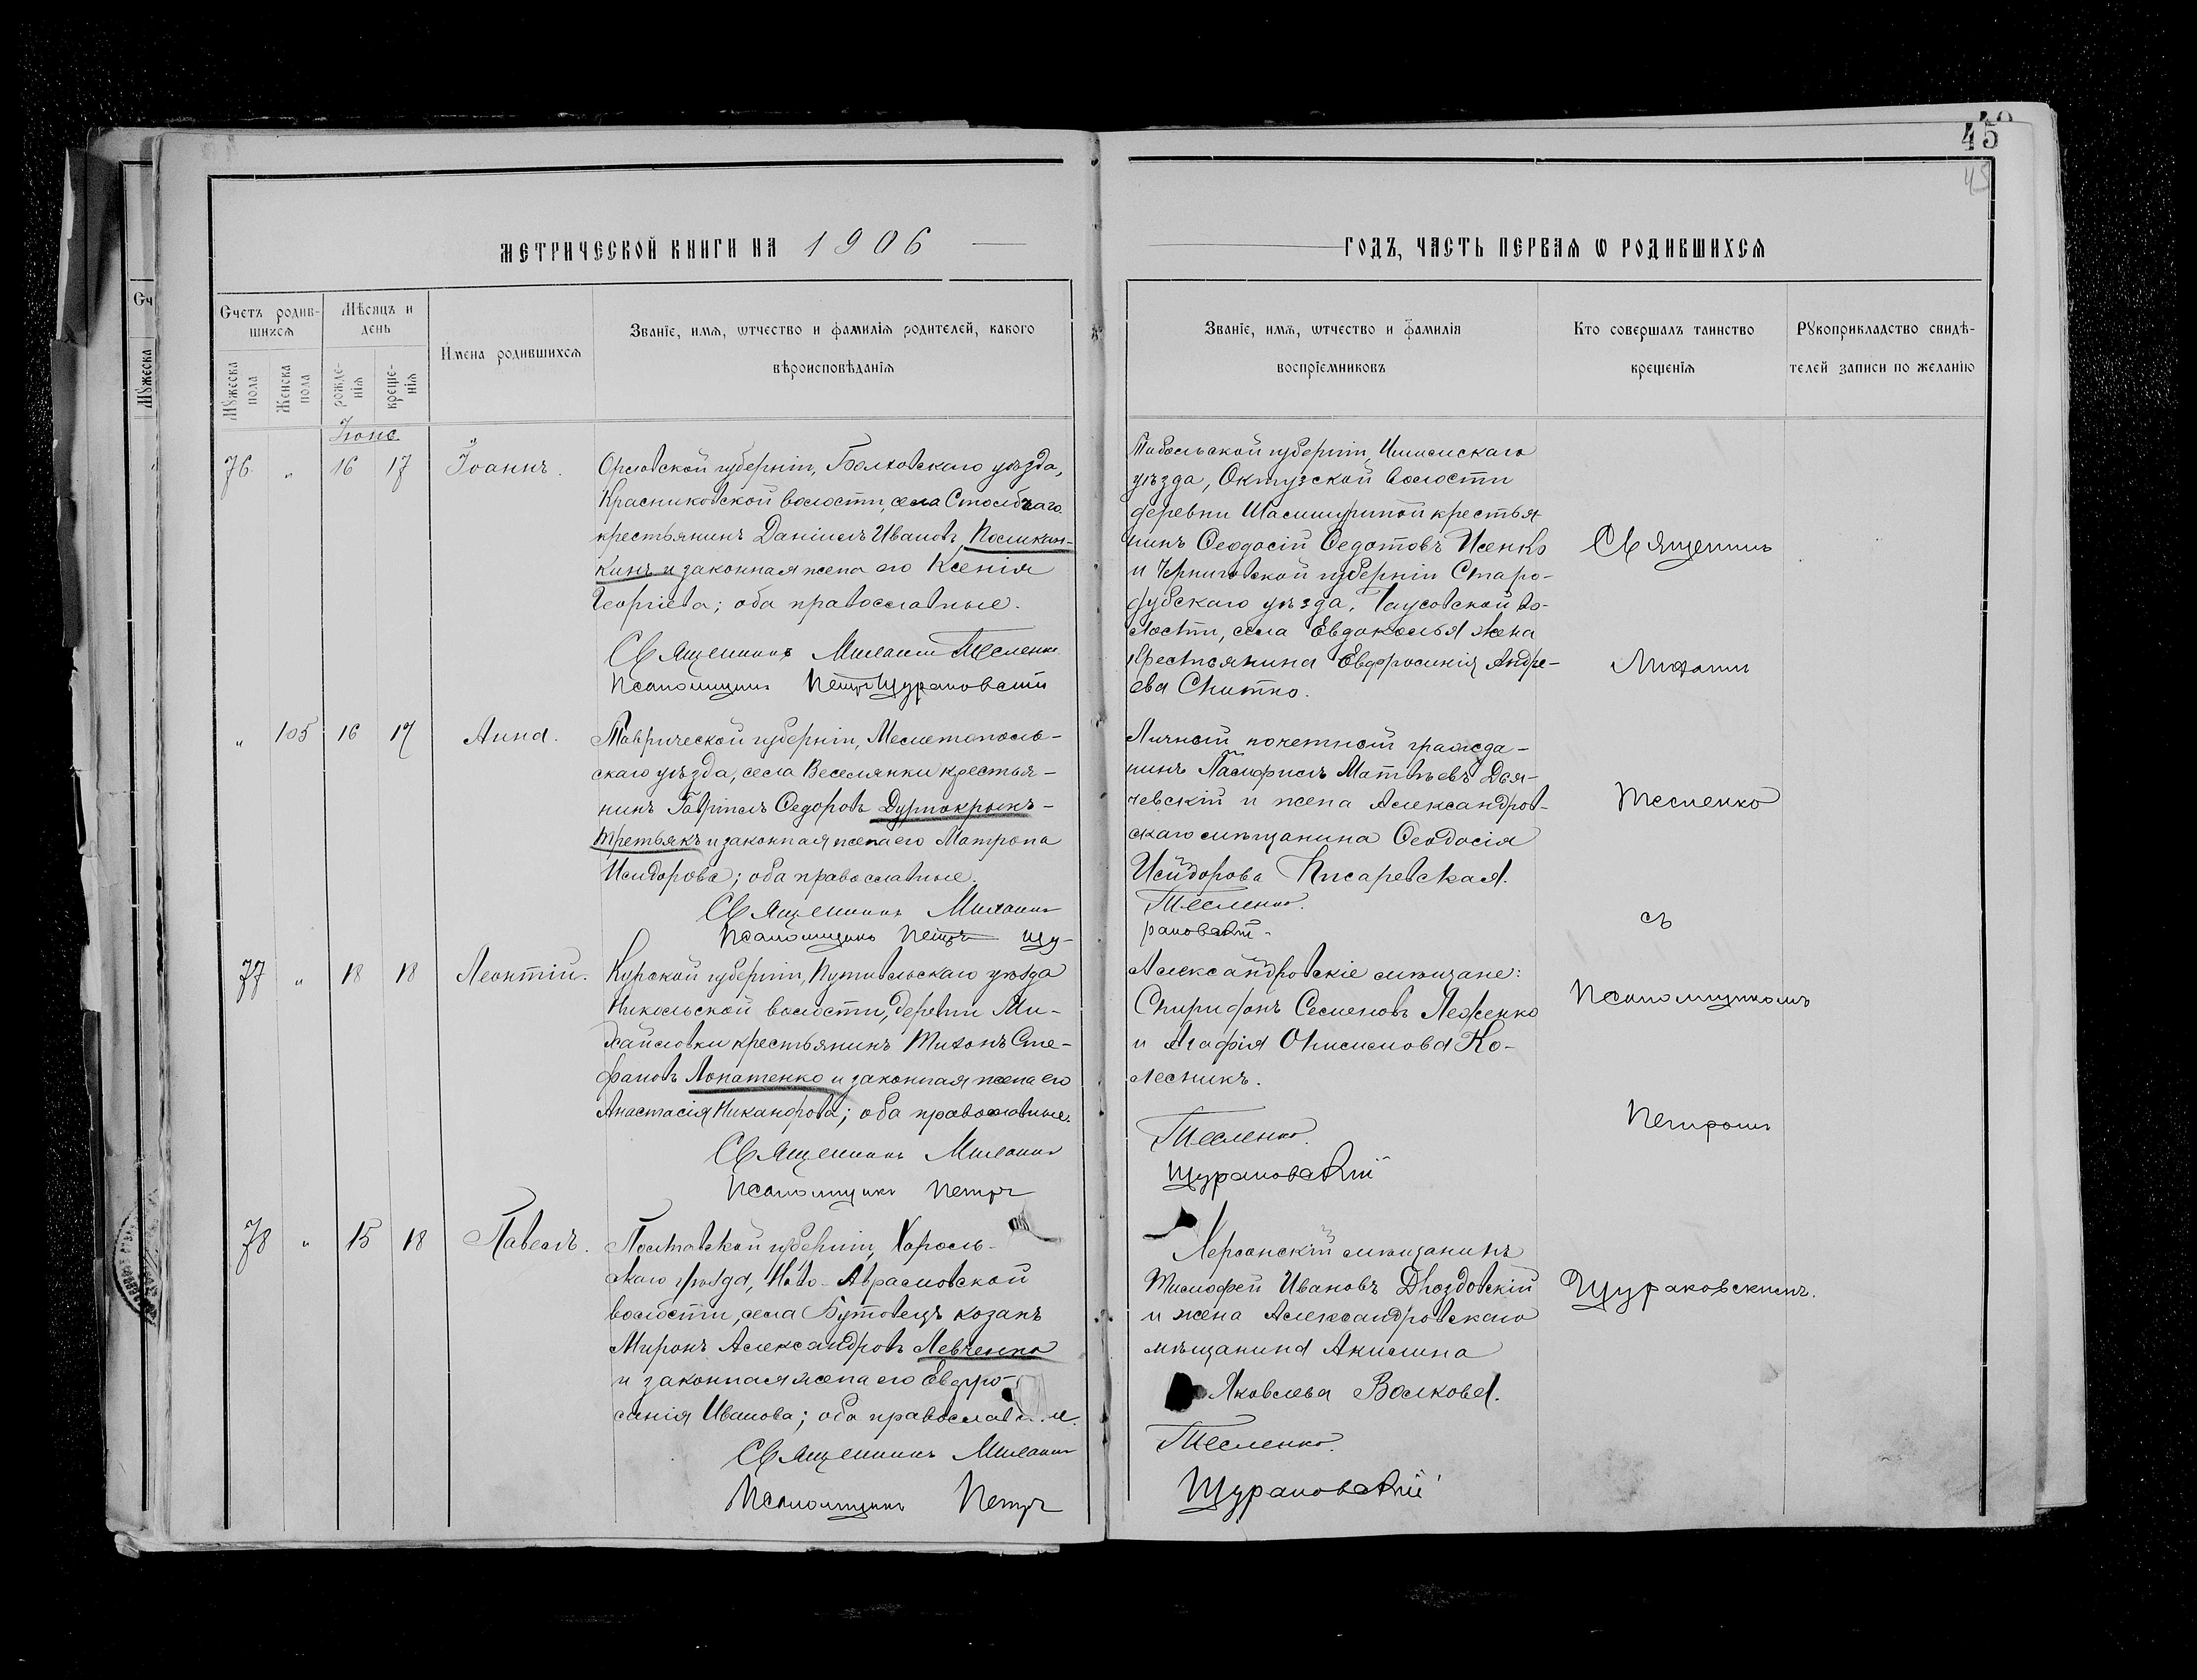 45
45
МЕТРИЧЕСКОЙ КНИГИ НА 1906
ГОДЪ, ЧАСТЬ ПЕРВАЯ Ѡ РОДИВШИХСЯ
Счетъ родив-
шихся
Мѣсяцъ и
день
Мужеска пола
Женска пола
рожде-
нія
креще-
нія
Имена родившихся
Званіе, имя, ѿтчество и фамилія родителей, какого
вѣроисповѣданія
Званіе, имя, ѿтчество и фамилія
воспріемниковъ
Кто совершалъ таинство
крещенія
Рукоприкладство свидѣ-
телей записи по желанію
Іюнь
76 " 16 17 Іоаннъ.
Орловской губерніи, Болховскаго уѣзда,
Красниковской волости, села
крестьянинъ Даніилъ Ивановъ
и законная жена его Ксенія
Георгіева; оба православные.
Священникъ Михаилъ Тесленко
Псаломщикъ Петръ Щураковскій
Тобольской губерніи, Ишимскаго
уѣзда, волости
деревни крестья-
нинъ Ѳеодосій Ѳедотовъ Исенко
и Черниговской губерніи Старо-
дубскаго уѣзда, во-
лости, села жена
крестьянина Евфросинія Андре-
ева
" 105 16 17 Анна.
Таврической губерніи, Мелитополь-
скаго уѣзда, села Веселянки крестья-
нинъ Гавріилъ Ѳедоровъ
Третьякъ и законная жена его Матрона
Исидорова; оба православные.
Священникъ Михаилъ
Псаломщикъ Петръ Щу-
Личный почетный гражда-
нинъ Памфилъ Матвѣевъ
и жена Александров-
скаго мѣщанина Ѳеодосія
Исидорова Писаревская.
Тесленко.
раковскій.
77 " 18 18 Леонтій.
Курской губерніи, Путивльскаго уѣзда
Никольской волости, деревни Ми-
хайловки крестьянинъ Тихонъ Сте-
фановъ Лопатенко и законная жена его
Анастасія Никанорова; оба православные.
Священникъ Михаилъ
Псаломщикъ Петръ
Александровскіе мѣщане:
Спиридонъ Семеновъ Леженко
и Агафія Онисимова Ко-
лесникъ.
Тесленко.
Щураковскій
78 " 15 18 Павелъ.
Полтавской губерніи, Хороль-
скаго уѣзда, Ново-Аврамовской
волости, села Бутовецъ козакъ
Миронъ Александровъ Левченко
и законная жена его Евфро-
синія Иванова; оба православные.
Священникъ Михаилъ
Псаломщикъ Петръ
Херсонскій мѣщанинъ
Тимофей Ивановъ Дроздовскій
и жена Александровскаго
мѣщанина Акилина
Яковлева Волкова.
Тесленко.
Щураковскій
Священникъ
Михаилъ
Тесленко
съ
Псаломщикомъ
Петромъ
Щураковскимъ.